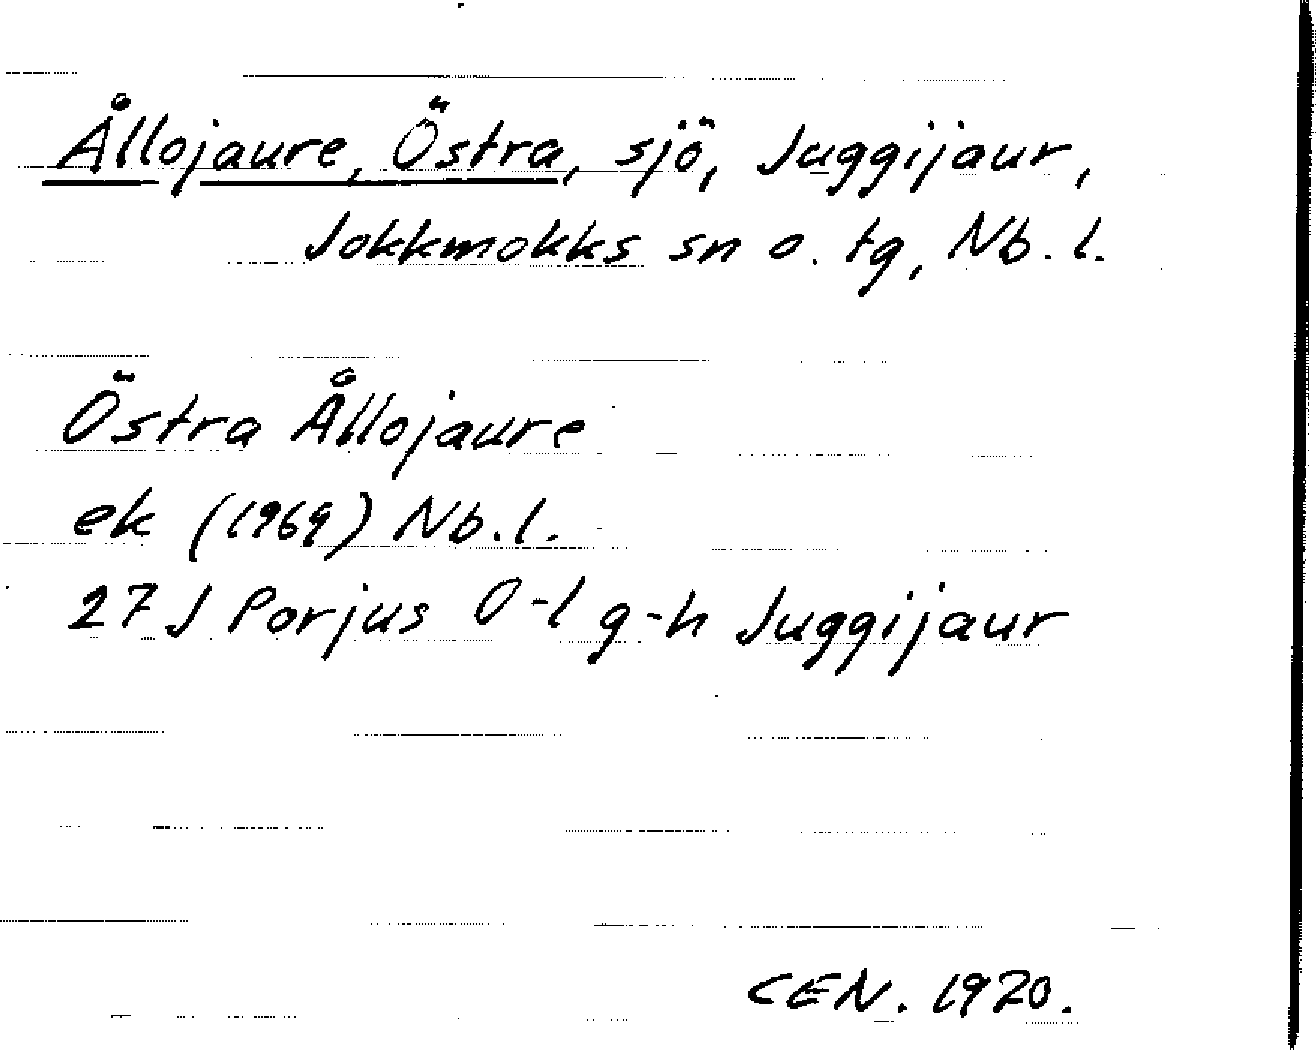 Ållojaure, Östra, sjö, Juggijaur,
Jokkmokks sn o. tg, Nb. l.
Östra Ållojaure
ek (1969) Nb. l.
27 J Porjus 0-1 g-h Juggijaur
CEN. 1970.